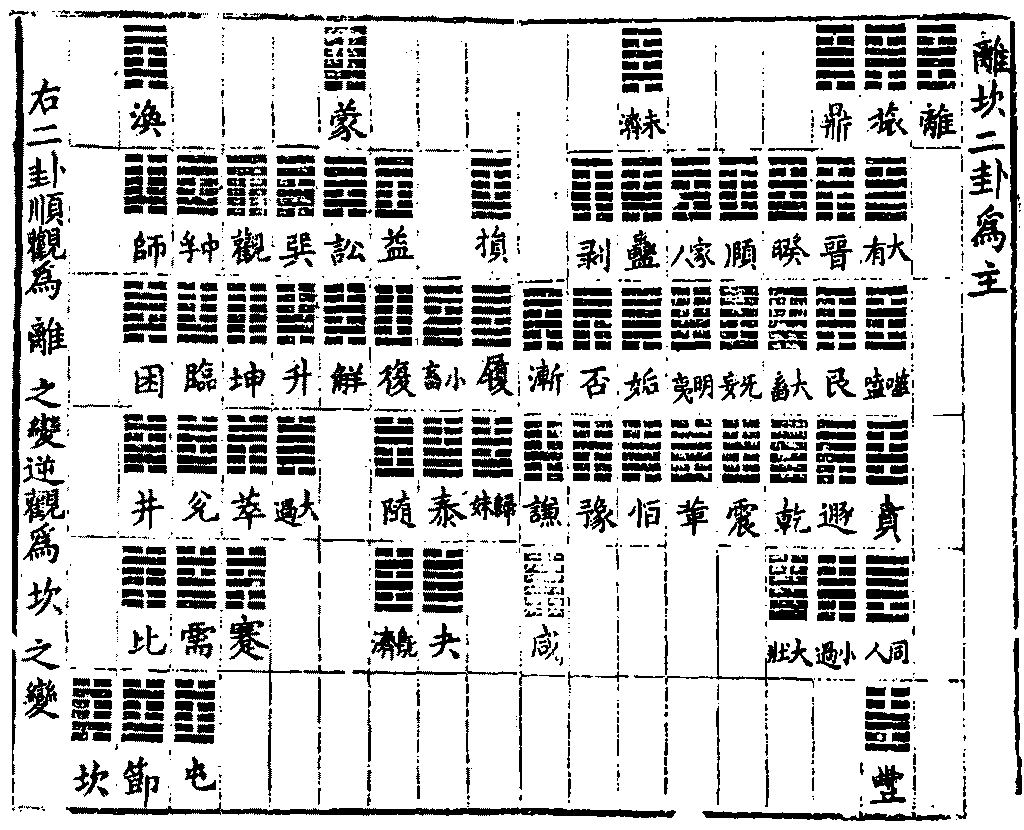 離坎二卦爲主
離 旅 鼎 未濟 蒙 渙
大有 晉 睽 頤 家人 蠱 剥 損 益 訟 巽 觀 中孚 師
噬嗑 艮 大畜 无妄 明夷 姤 否 漸 履 小畜 復 解 升 坤 臨 困
賁 遯 乾 震 革 恒 豫 謙 歸妹 泰 隨 大過 萃 兌 井
同人 小過 大壯 咸 夬 既濟 蹇 需 比
豐 屯 節 坎
右二卦順觀爲離之變逆觀爲坎之變